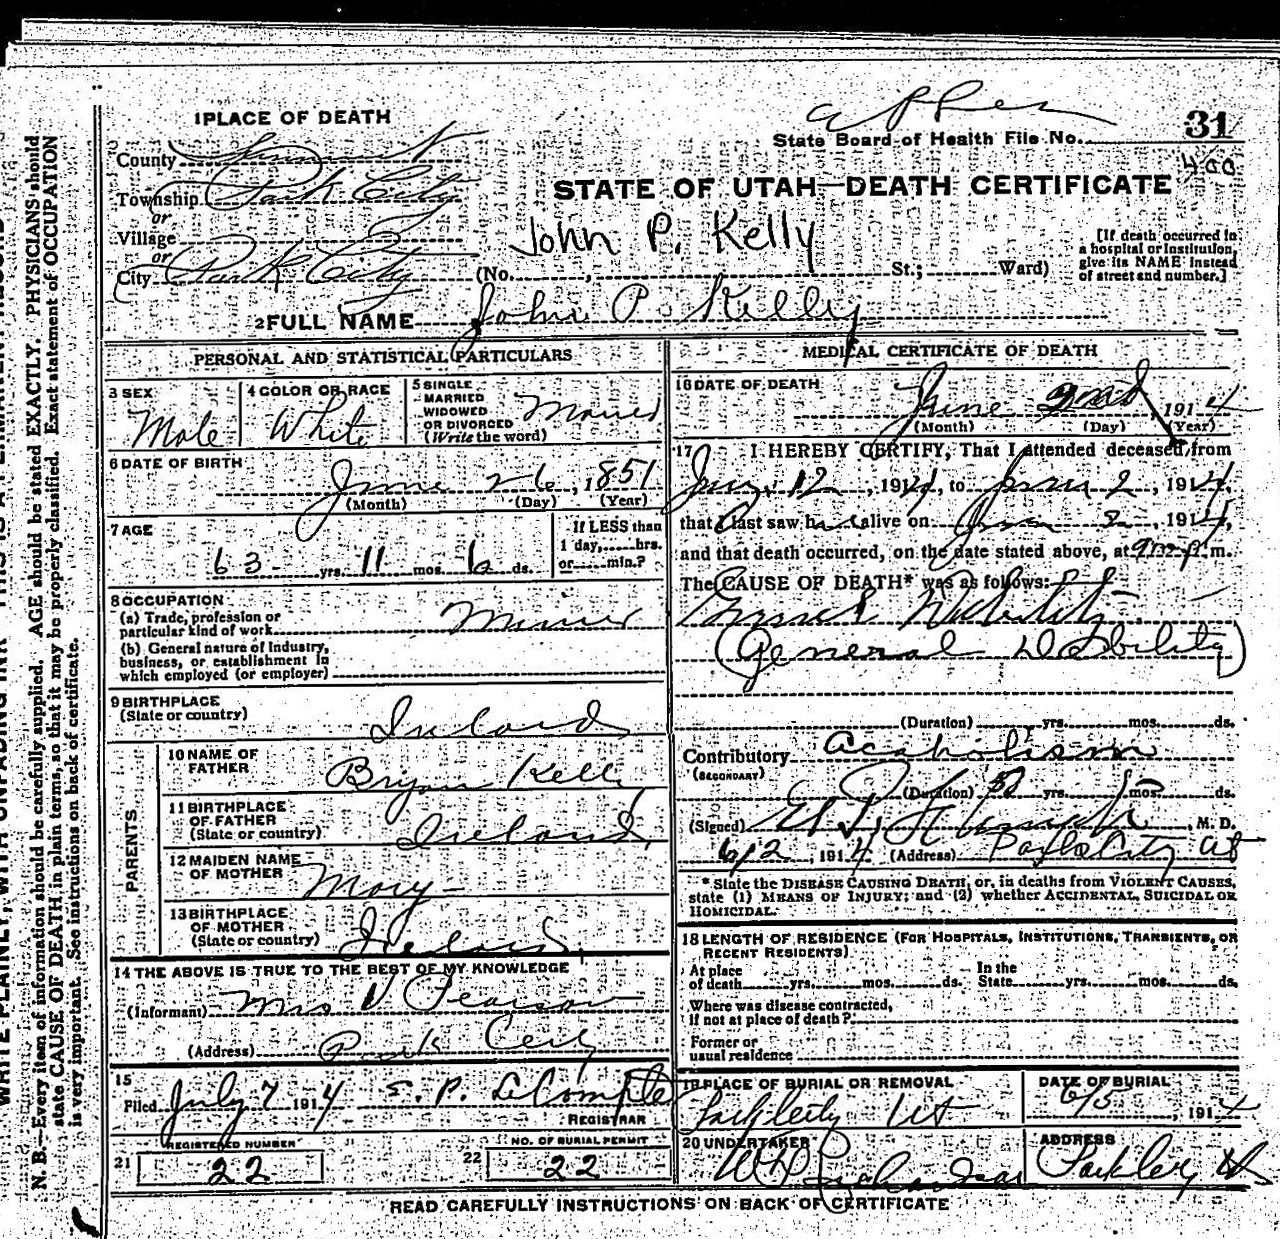 1 PLACE OF DEATH
31
State Board of Health File No.
400
County Summit
Township Park City
or
Village
or
City Park City
STATE OF UTAH—DEATH CERTIFICATE
John P. Kelly
(No. St.; Ward)
[If death occurred in
a hospital or institution,
give its NAME instead
of street and number.]
2 FULL NAME John P. Kelly
PERSONAL AND STATISTICAL PARTICULARS
3 SEX
Male
4 COLOR OR RACE
White
5 SINGLE
MARRIED
WIDOWED
OR DIVORCED
(Write the word)
6 DATE OF BIRTH
June 26, 1851
(Month) (Day) (Year)
7 AGE
63 yrs. 11 mos. 6 ds.
If LESS than
1 day, hrs.
or min.?
8 OCCUPATION
(a) Trade, profession or
particular kind of work Miner
(b) General nature of industry,
business, or establishment in
which employed (or employer)
9 BIRTHPLACE
(State or country)
Ireland
PARENTS
10 NAME OF
FATHER
Bryan Kelly
11 BIRTHPLACE
OF FATHER
(State or country)
Ireland
12 MAIDEN NAME
OF MOTHER
Mary
13 BIRTHPLACE
OF MOTHER
(State or country)
Ireland
14 THE ABOVE IS TRUE TO THE BEST OF MY KNOWLEDGE
(Informant) Mrs Pearson
(Address) Park City
15
Filed July 7 1914
REGISTRAR
21
REGISTERED NUMBER
22
22
NO. OF BURIAL PERMIT
22
MEDICAL CERTIFICATE OF DEATH
16 DATE OF DEATH
June 2nd 1914
(Month) (Day) (Year)
17 I HEREBY CERTIFY, That I attended deceased from
12, 1914, to June 2, 1914,
that I last saw h alive on June 2, 1914,
and that death occurred, on the date stated above, at m.
The CAUSE OF DEATH* was as follows:
General Debility
(General Debility)
(Duration) yrs. mos. ds.
Contributory Acaholism
(SECONDARY)
(Duration) yrs. mos. ds.
(Signed) M. D.
6/2, 1914 (Address) Park City Ut
* State the DISEASE CAUSING DEATH, or, in deaths from VIOLENT CAUSES,
state (1) MEANS OF INJURY; and (2) whether ACCIDENTAL, SUICIDAL OR
HOMICIDAL.
18 LENGTH OF RESIDENCE (FOR HOSPITALS, INSTITUTIONS, TRANSIENTS, OR
RECENT RESIDENTS)
At place
of death yrs. mos. ds.
In the
State yrs. mos. ds.
Where was disease contracted,
if not at place of death?
Former or
usual residence
19 PLACE OF BURIAL OR REMOVAL
Park City Ut
DATE OF BURIAL
6/5, 1914
20 UNDERTAKER
ADDRESS
Park City Ut
READ CAREFULLY INSTRUCTIONS ON BACK OF CERTIFICATE
N. B.—Every item of information should be carefully supplied. AGE should be stated EXACTLY. PHYSICIANS should
state CAUSE OF DEATH in plain terms, so that it may be properly classified. Exact statement of OCCUPATION
is very important. See instructions on back of certificate.